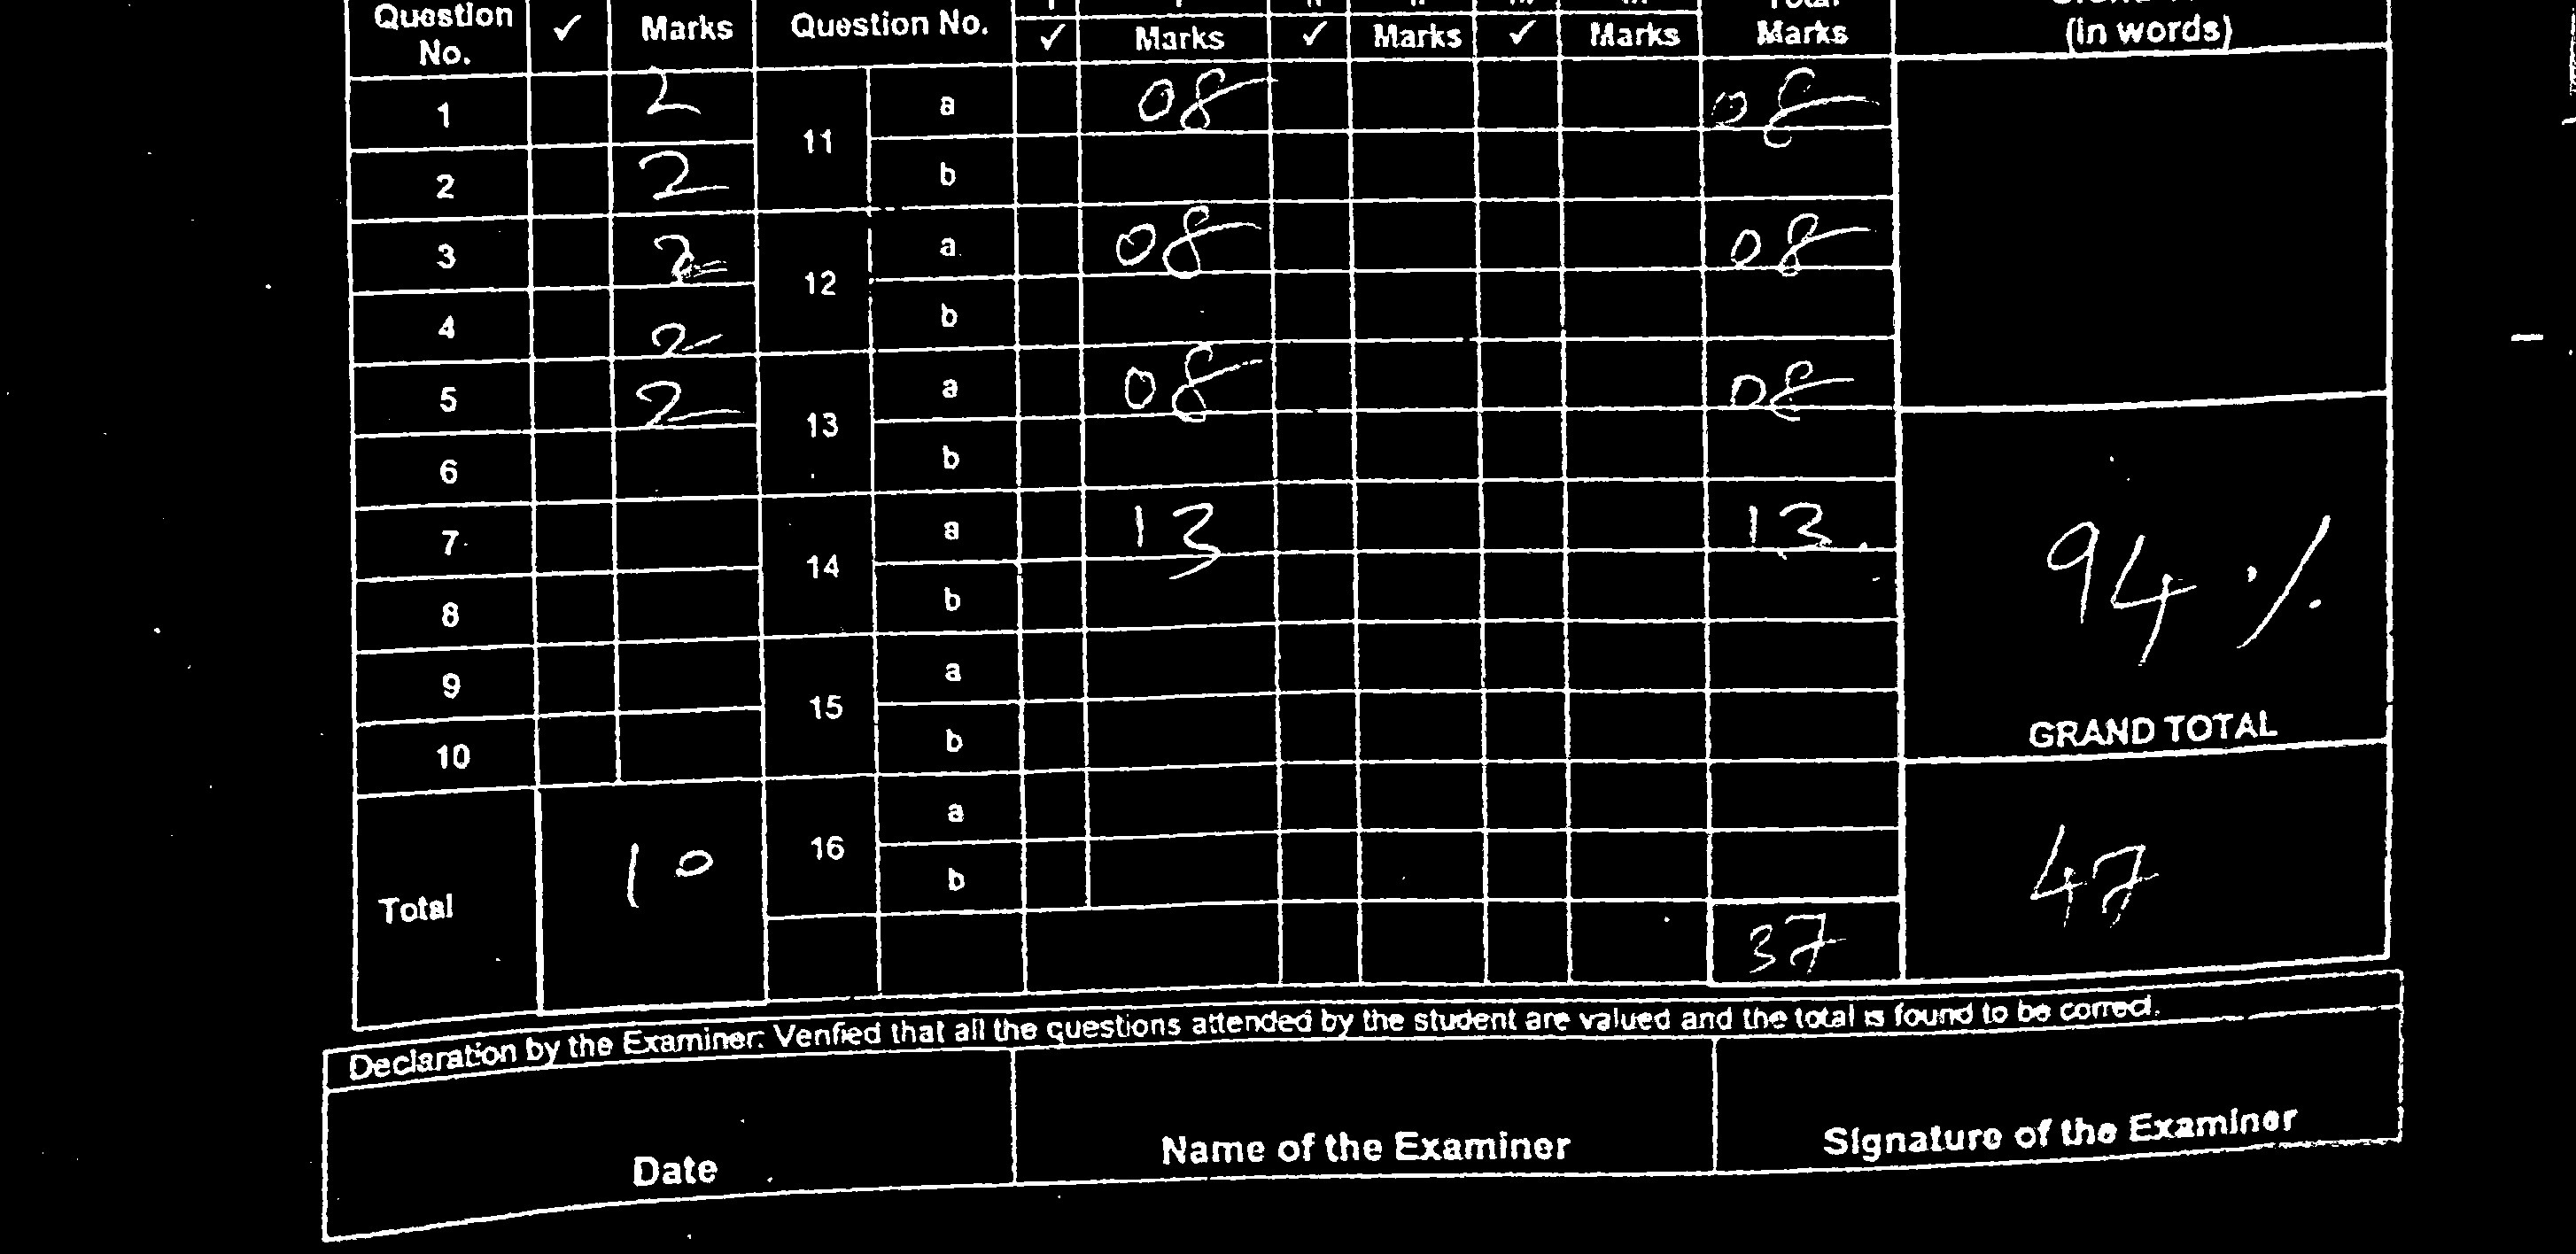 Question No. ✓ Marks Question No. ✓ Marks ✓ Marks ✓ Marks Total Marks (In words)
1 2 11 a 08 08
2 2 b
3 2 12 a 08 08
4 2 b
5 2 13 a 08 08
6 b
7 14 a 13 13
8 b
94 %
9 15 a
GRAND TOTAL
10 b
16 a
Total 10 47
b
37
Declaration by the Examiner: Verified that all the questions attended by the student are valued and the total is found to be correct.
Date Name of the Examiner Signature of the Examiner